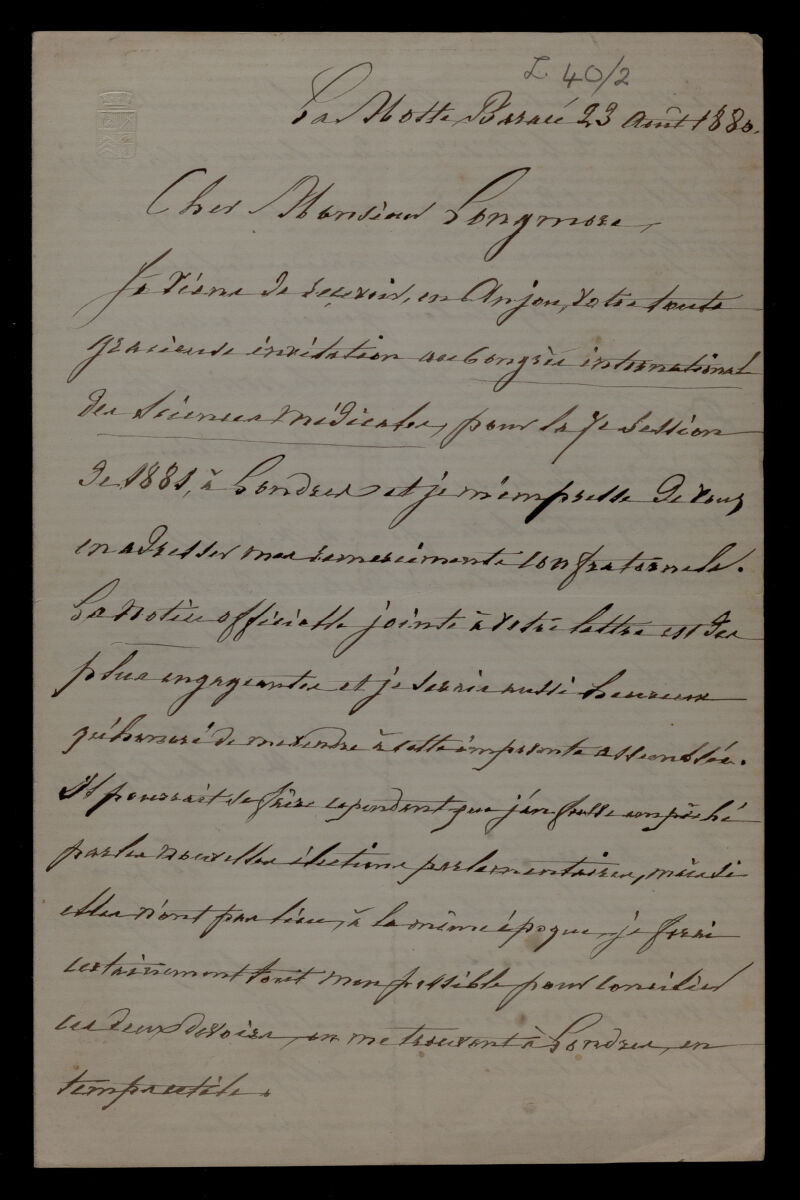 L 40/2
La Motte Baracé 23 Août 1880.
Cher Monsieur Longmore,
Je viens de recevoir, en Anjou, votre toute
gracieuse invitation au Congrès international
des sciences médicales, pour la 7e session
de 1881, à Londres et je m'empresse de vous
en adresser mes remerciements confraternels.
La notice officielle jointe à votre lettre est des
plus engageantes et je serais aussi heureux
qu'honoré de me rendre à cette imposante assemblée.
Il pourrait se faire cependant que j'en fusse empêché
par les nouvelles élections parlementaires, mais si
elles n'ont pas lieu, à la même époque, je ferai
certainement tout mon possible pour concilier
ces deux devoirs, en me trouvant à Londres, en
temps utile.